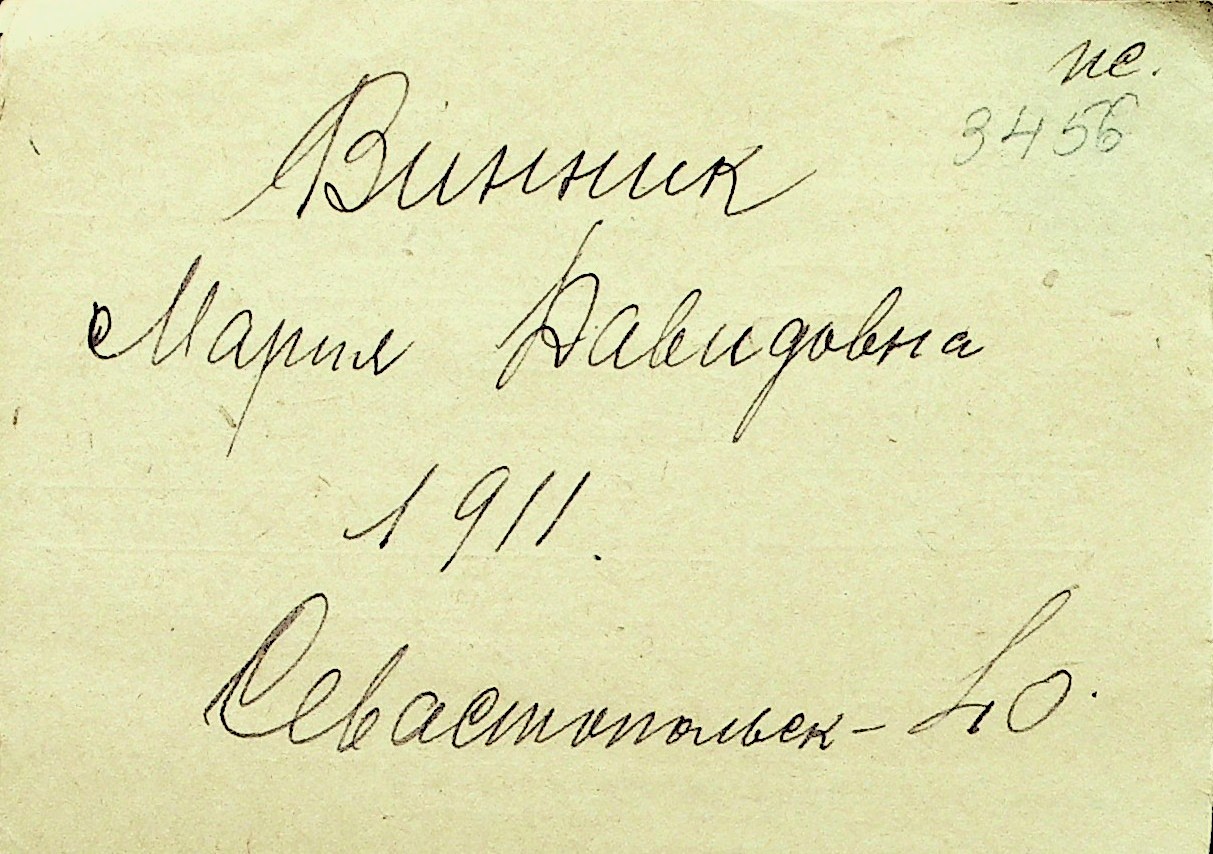 пс.
3456
Винник
Мария Давидовна
1911.
Севастопольск- 40.